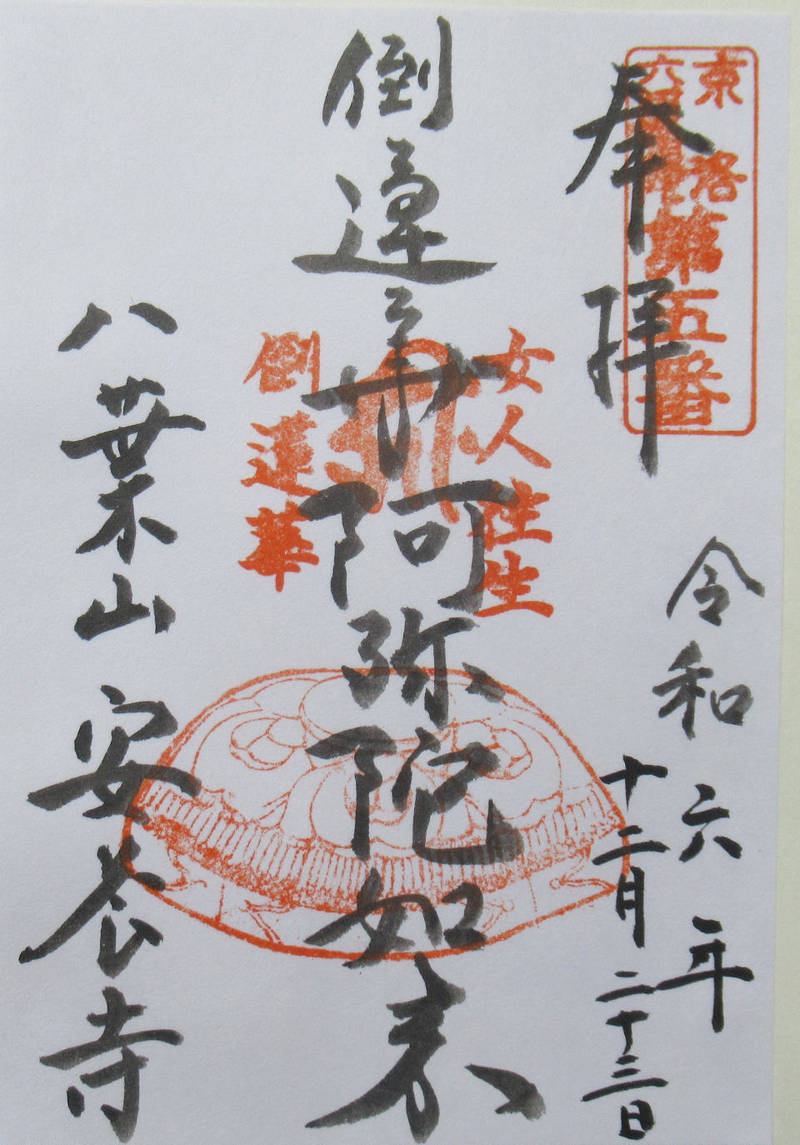 奉拝
京洛
六
第五番
令和六年
十二月二十三日
倒蓮華阿弥陀如来
女人往生
倒蓮華
八葉山安養寺